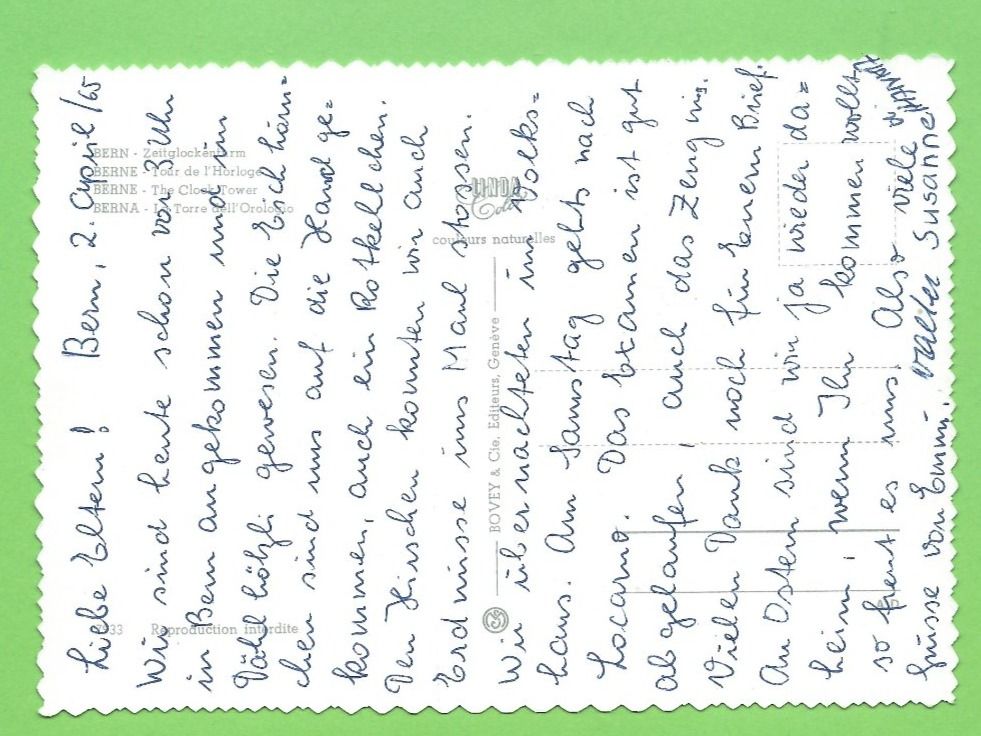 BERN - Zeitglockenturm
BERNE - Tour de l'Horloge
BERNE - The Clock Tower
BERNA - La Torre dell'Orologio
LINDA
Color
couleurs naturelles
BOVEY & Cie, Editeurs, Genève
7933 Reproduction interdite
Liebe Eltern! Bern, 2. April /65
Wir sind heute schon vor 3 Uhr
in Bern angekommen und im
Dählhölzli gewesen. Die Eichhörn=
chen sind uns auf die Hand ge=
kommen, auch ein Rotkelchen.
Den Hirschen konnten wir auch
Erdnüsse ins Maul stossen.
Wir übernachteten im Volks=
haus. Am Samstag gehts nach
Locarno. Das Examen ist gut
abgelaufen, auch das Zeug
Vielen Dank noch für Eueren Brief.
An Ostern sind wir ja wieder da=
heim, wenn Ihr kommen wollt,
so freut es uns. Also viele
Grüsse von Emmi, Walter
Susanne